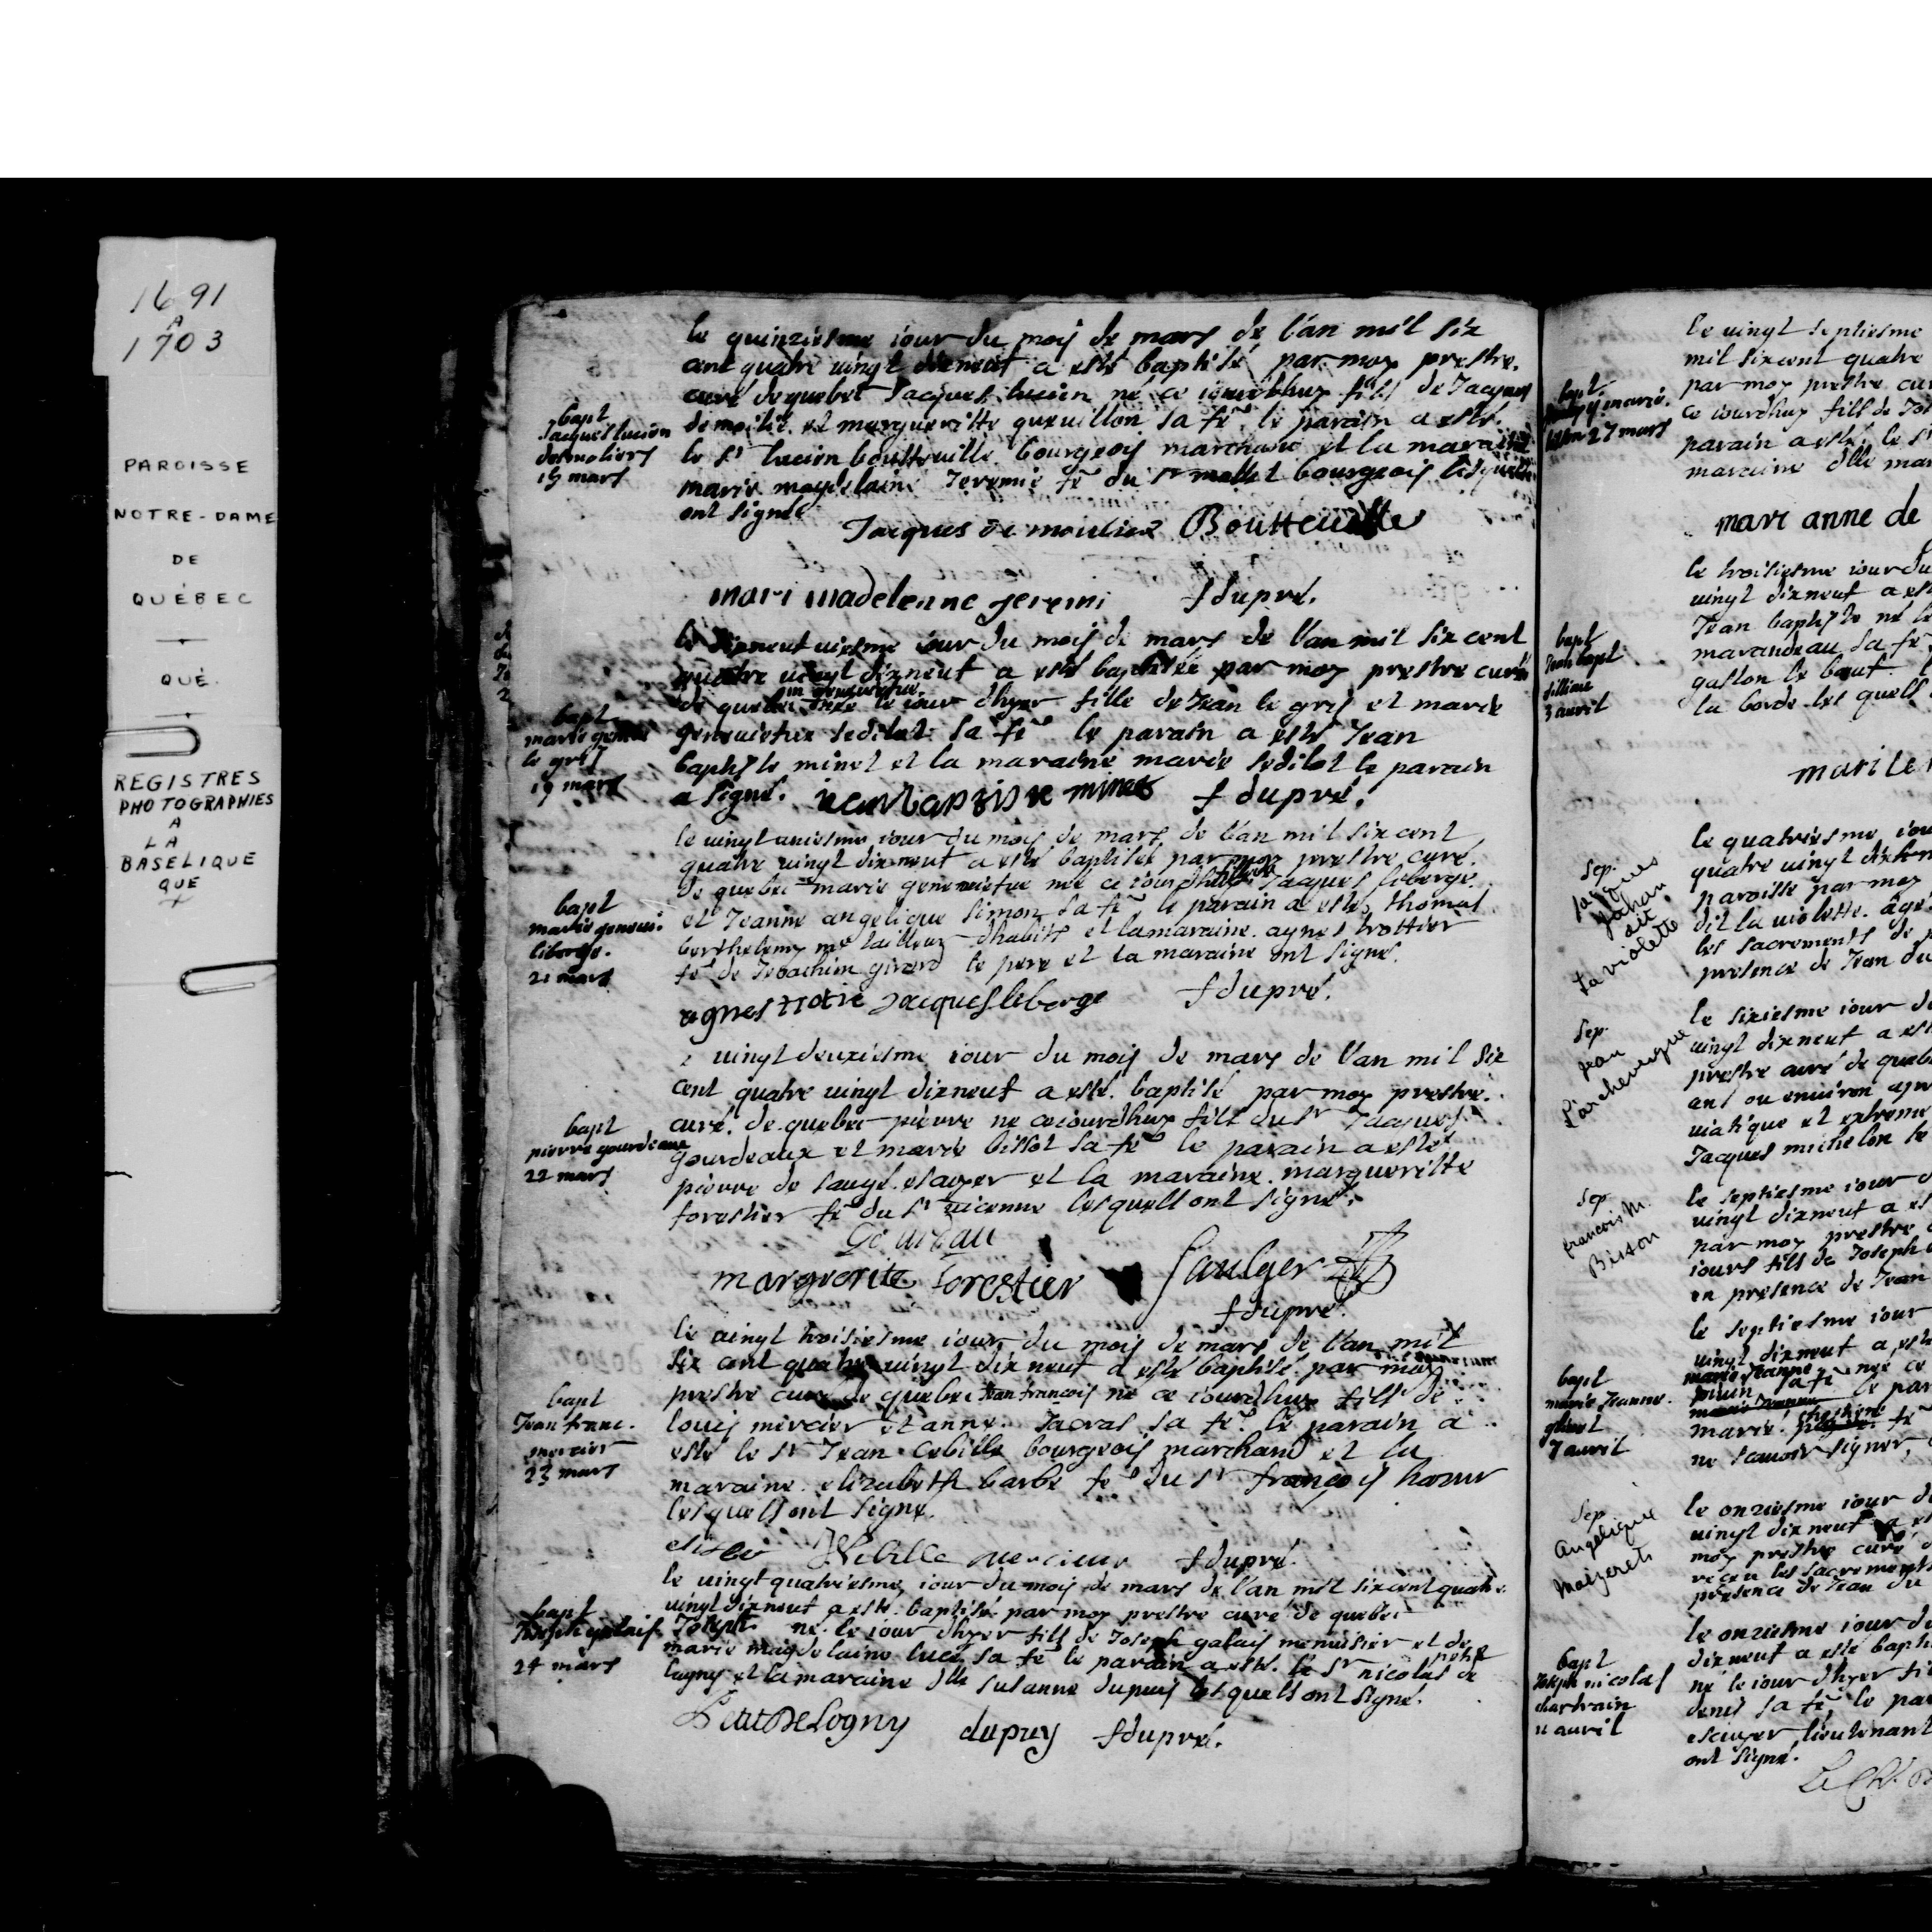 1691
A
1703
PAROISSE
NOTRE-DAME
DE
QUÉBEC
QUÉ.
REGISTRES
PHOTOGRAPHIES
A
LA
BASELIQUE
QUE
le quinziesme iour du mois de mars de l'an mil six
cent quatre vingt dixneuf a esté baptisé par moy prestre
curé de quebec Jacques lucien né ce iourdhuy fils de Jacques
bapt
Jacques lucien
desmoliers
15 mars
et margueritte guuillon sa fe le parain a esté
le Sr lucien boutteuille bourgeois marchand et la maraine
marie magdelaine Jeremie fe du Sr bourgeois lesquels
ont signé
Jacques de moulier Boutteuille
mari madelenne jeremi fdupré.
le dixneuuiesme iour du mois de mars de l'an mil six cent
quatre vingt dixneuf a esté baptisée par moy prestre curé
de quebec le iour dhyer fille de Jean le gris et marie
bapt
marie
le gris
19 mars
geneuiefue sedilot sa fe le parain a esté Jean
baptiste minet et la maraine marie sedilot le parain
a signé. jean baptiste minet fdupré.
le vingt uniesme iour du mois de mars de l'an mil six cent
quatre vingt dixneuf a esté baptisée par moy prestre curé
de quebec marie geneuiefue née ce iourdhuy Jacques leberge
bapt
marie geneui.
liberge.
21 mars
et Jeanne angelique simon sa fe le parain a esté thomas
berthelemy me tailleur dhabits et la maraine agnes trottier
fe de Jobachim girard le pere et la maraine ont signé.
agnes trotie Jacques leberge fdupré.
vingt deuxiesme iour du mois de mars de l'an mil six
cent quatre vingt dixneuf a esté baptisé par moy prestre
curé de quebec pierre né ceiourdhuy fils du Sr Jacques
bapt
pierre gourdeaux
22 mars
gourdeaux et marie bissot sa fe le parain a esté
pierre de saugé et la maraine margueritte
forestier fe du Sr uicenne lesquels ont signé.
Gourdeau
marguerite forestier Saulger
fdupré.
le vingt troisiesme iour du mois de mars de l'an mil
six cent quatre vingt dix neuf a esté baptisé par moy
prestre curé de quebec Jean francois né ce iourdhuy fils de
bapt
Jean franc.
mercier
23 mars
louis mercier et anne Jacras sa fe le parain a
esté le Sr Jean cebille bourgeois marchand et la
maraine elizabeth barbe fe du Sr françois
lesquels ont signé.
Sebille mercier fdupré.
le vingt quatriesme iour du mois de mars de l'an mil sixcent quatre
vingt dixneuf a esté baptisé par moy prestre curé de quebec
bapt
Joseph galais
24 mars
Joseph né le iour dhyer fils de Joseph galais menuisier et de
marie magdelaine luce sa fe le parain a esté le Sr nicolas petit de
lugny et la maraine dlle susanne dupuis lesquels ont signé.
Petit De Logny dupuy fdupré.
le vingt septiesme
mil sixcent quatre
par moy prestre
bapt.
marie.
27 mars
ce iourdhuy fils de
parain a esté le Sr
maraine dlle
mari anne de
le troisiesme iour du
vingt dixneuf a
Jean baptiste né le
bapt
Jean bapt
fillime
3 auril
marandeau sa fe
gaston le
la borde les quels
le quatriesme
quatre vingt
paroisse par moy
Sep.
Jacques
Jahan
dit
La violette
dit la uiolette. âgé
les sacrements de
presence de Jean du
le sixiesme iour
vingt dixneuf a
prestre curé de
Sep.
Jean
Larcheuesque
ans ou enuiron
uiatique et extreme
Jacques michelon
le septiesme iour
vingt dixneuf a
par moy prestre
Sep
francois M.
Bisson
iours fils de Joseph
en presence de Jean
le septiesme iour
vingt dixneuf a
bapt
marie Jeanne
7 auril
marie Jeanne née ce
sa fe le
marie
ne scauoir signer
le onziesme iour
vingt dixneuf
moy prestre curé
Sep
Angelique
Maizerets
receu les sacrements
presence de Jean du
le onziesme iour
dixneuf a esté
bapt
Joseph nicolas
chartrain
11 auril
né le iour dhyer
denis sa fe le
escuyer lieutenant
ont signé.